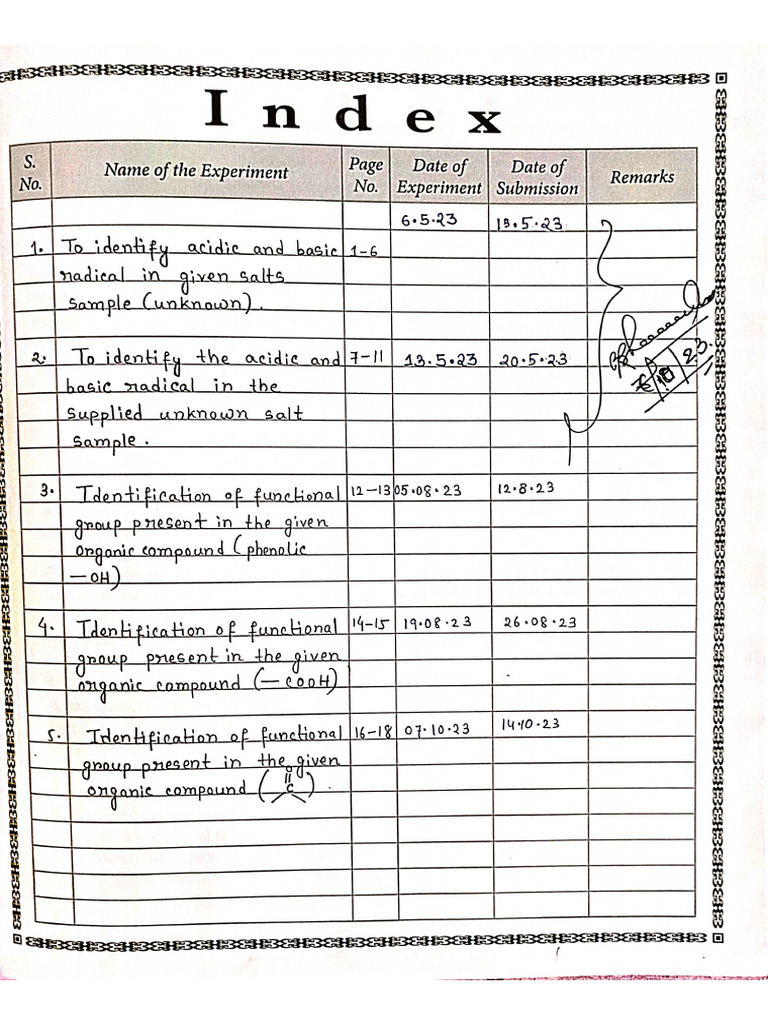 Index
S. No. Name of the Experiment Page No. Date of Experiment Date of Submission Remarks
6.5.23 13.5.23
1. To identify acidic and basic 1-6
radical in given salts
sample (unknown).
2. To identify the acidic and 7-11 13.5.23 20.5.23
basic radical in the
supplied unknown salt
sample.
3. Identification of functional 12-13 05.08.23 12.8.23
group present in the given
organic compound (phenolic
-OH)
4. Identification of functional 14-15 19.08.23 26.08.23
group present in the given
organic compound (-COOH)
5. Identification of functional 16-18 07.10.23 14.10.23
group present in the given
organic compound (O=C).
10 23